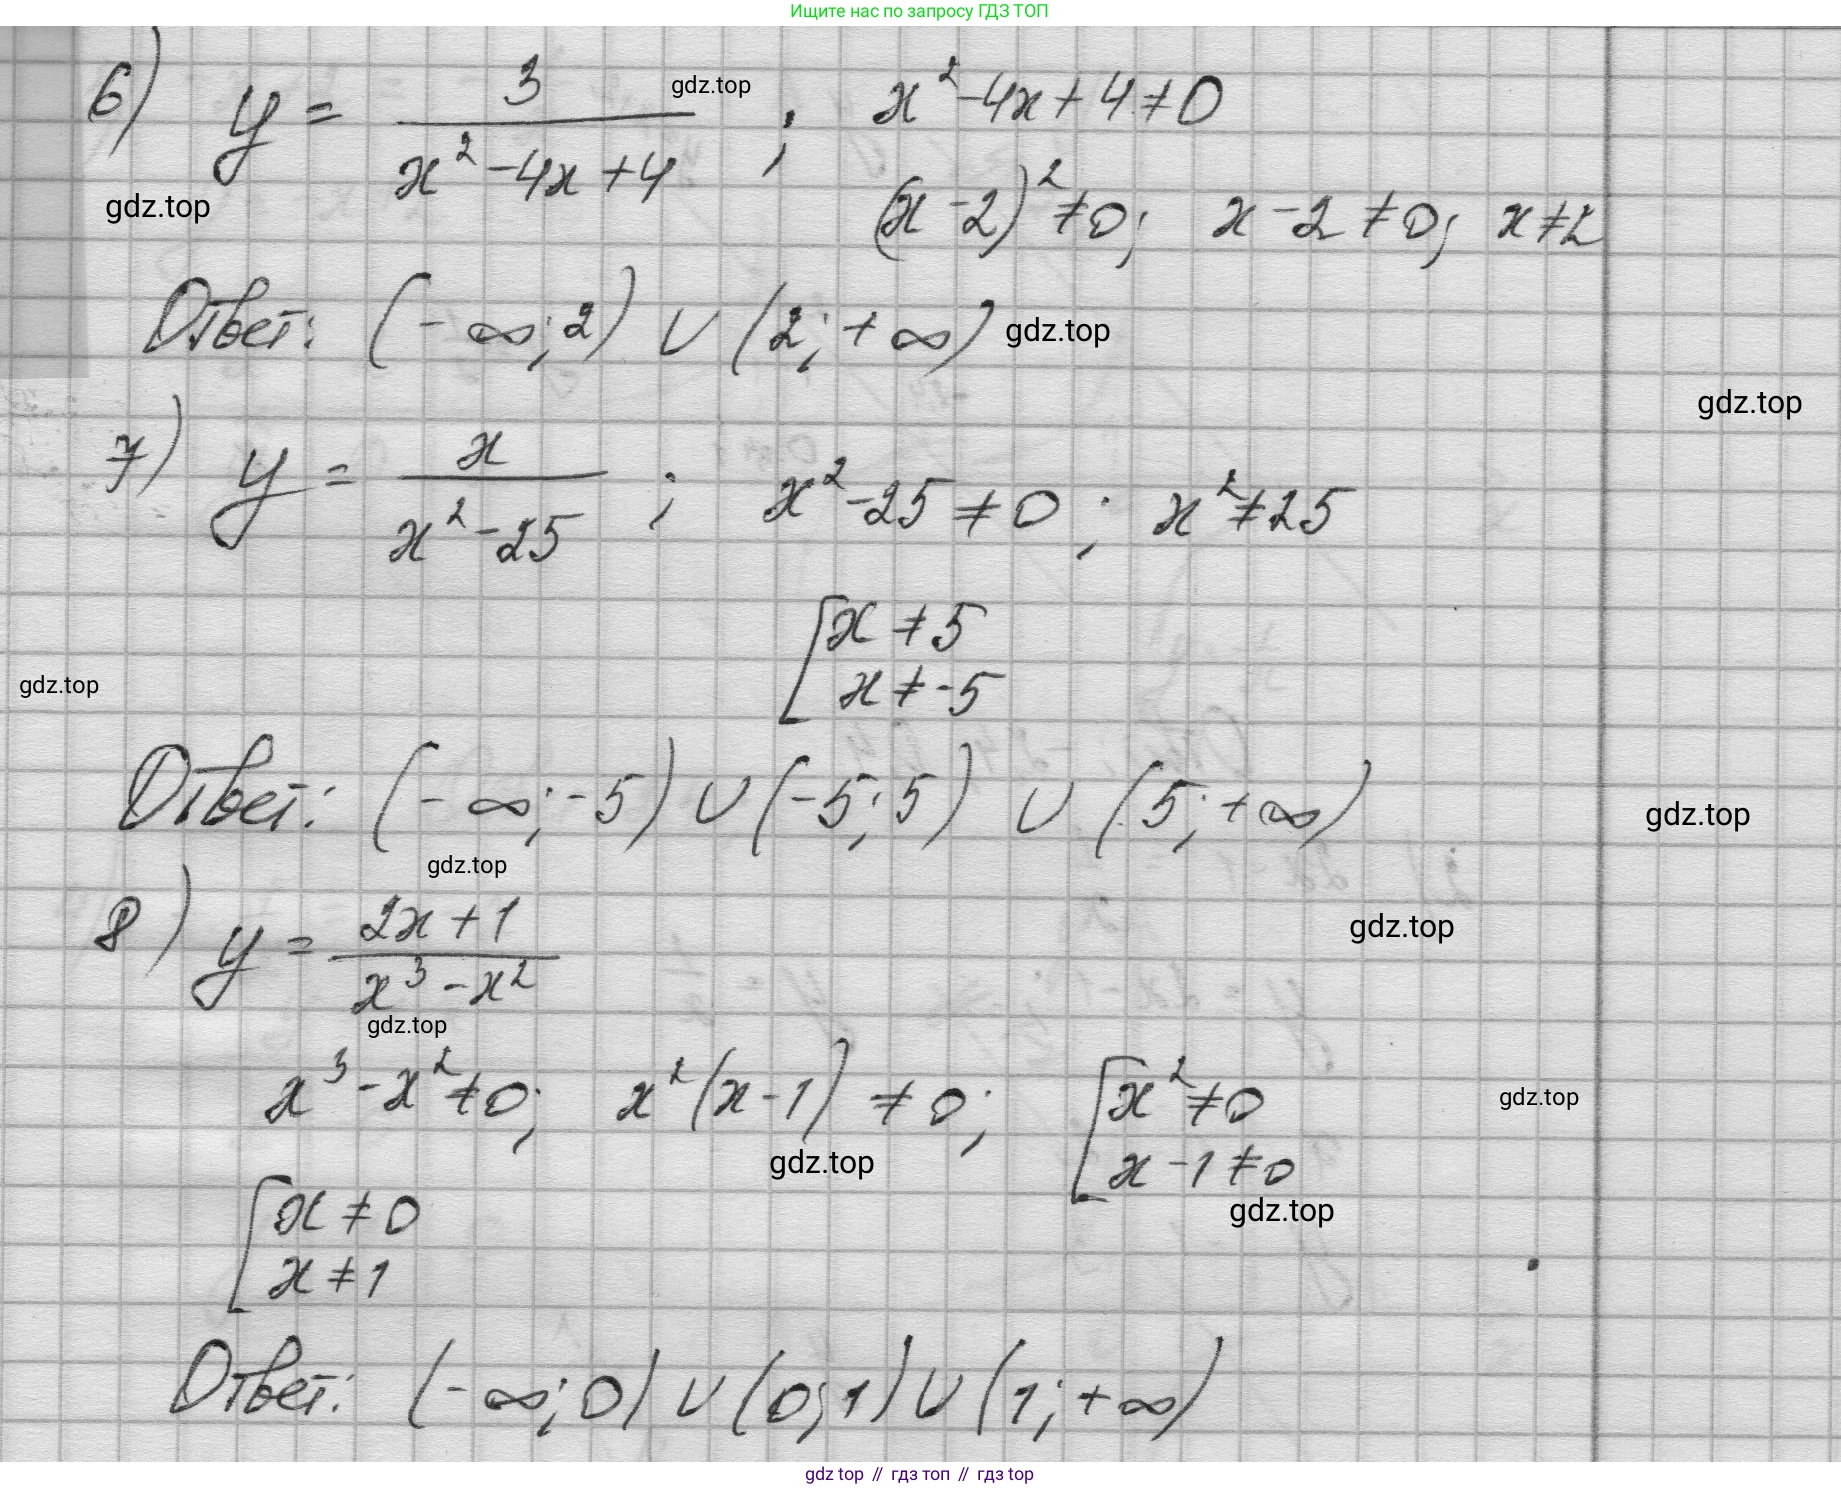 Ищите нас по запросу ГДЗ ТОП
6) y = 3 / (x² - 4x + 4) ; x² - 4x + 4 ≠ 0
gdz.top
(x - 2)² ≠ 0; x - 2 ≠ 0; x ≠ 2
gdz.top
Ответ: (-∞; 2) ∪ (2; +∞)
gdz.top
gdz.top
7) y = x / (x² - 25) ; x² - 25 ≠ 0 ; x² ≠ 25
[x ≠ 5
x ≠ -5
gdz.top
Ответ: (-∞; -5) ∪ (-5; 5) ∪ (5; +∞)
gdz.top
gdz.top
8) y = (2x + 1) / (x³ - x²)
gdz.top
gdz.top
x³ - x² ≠ 0; x²(x - 1) ≠ 0; [x² ≠ 0
x - 1 ≠ 0
gdz.top
gdz.top
gdz.top
[x ≠ 0
x ≠ 1
Ответ: (-∞; 0) ∪ (0; 1) ∪ (1; +∞)
gdz top // гдз топ // гдз top